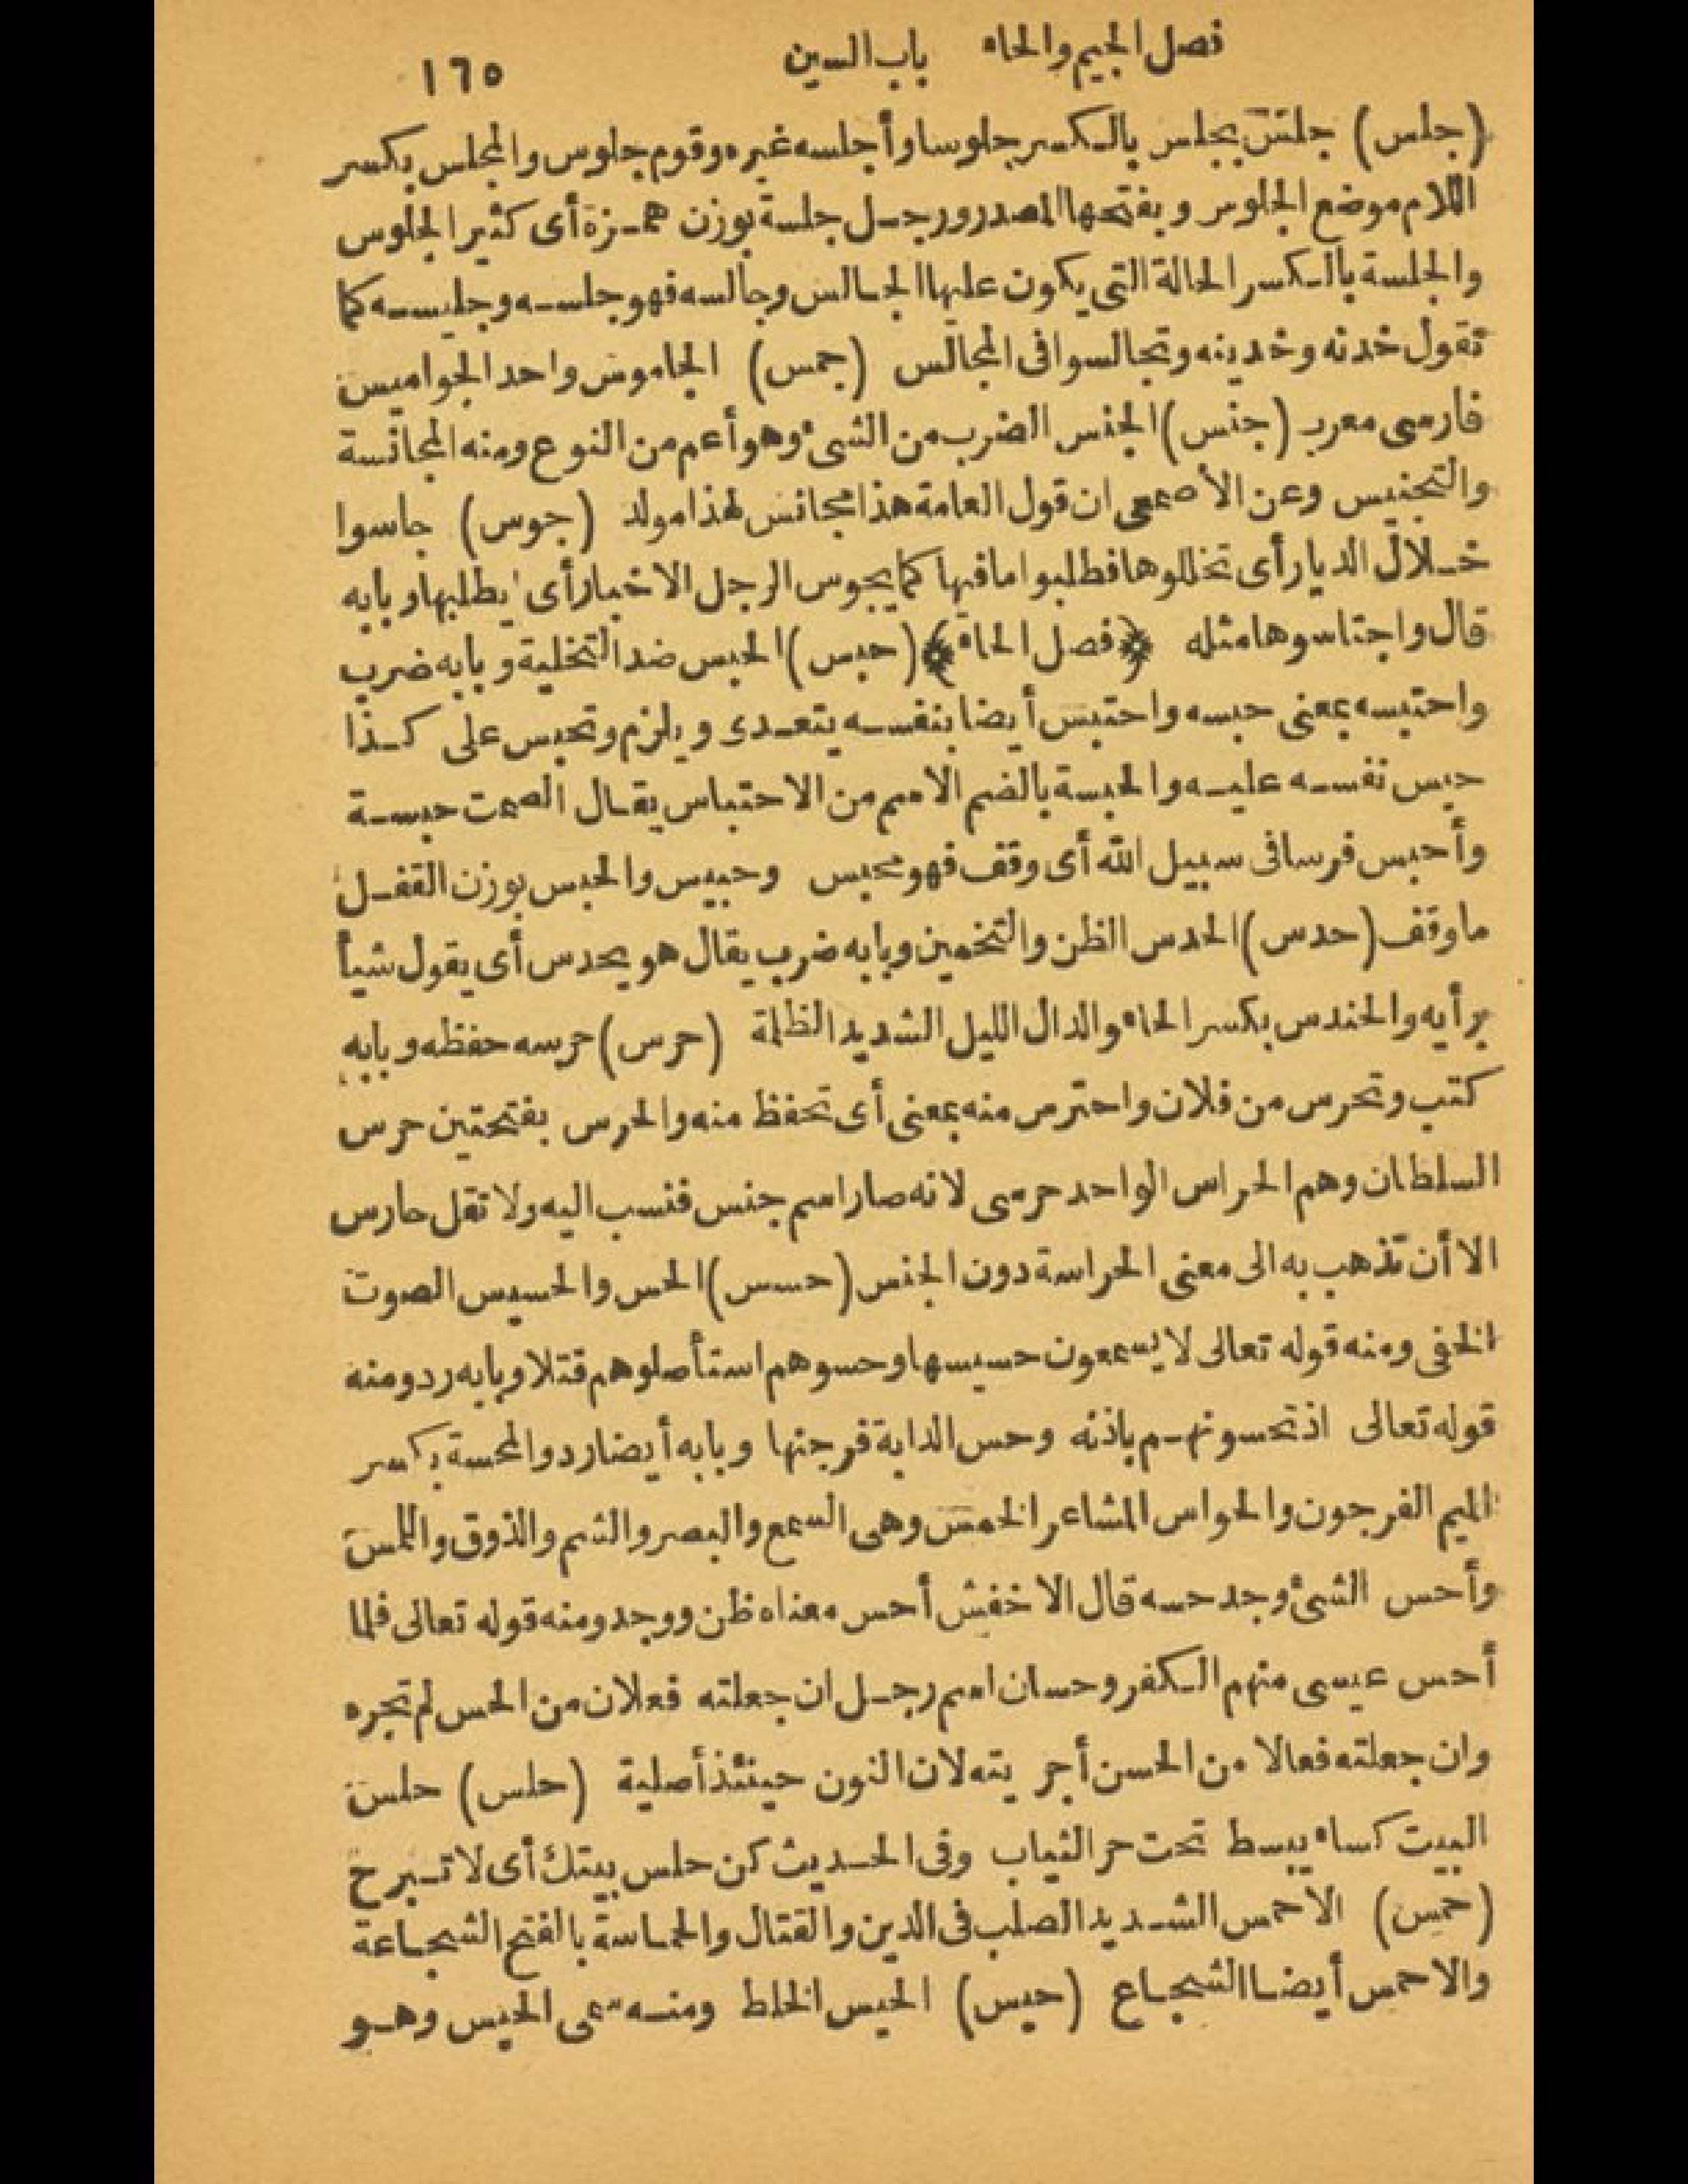 فصل الجيم والحاء باب السين ١٦٥
(جلس) جلس يجلس بالكسر جلوسا وأجلسه غيره وقوم جلوس والمجلس بكسر
اللام موضع الجلوس وبفتحها المصدر ورجل جلسة بوزن همزة أى كثير الجلوس
والجلسة بالكسر الحالة التى يكون عليها الجالس وجالسه فهو جلسه وجليسه كما
تقول خدنه وخدينه وتجالسوا فى المجالس (جمس) الجاموس واحد الجواميس
فارسى معرب (جنس) الجنس الضرب من الشىء وهو أعم من النوع ومنه المجانسة
والتجنيس وعن الأصمعى ان قول العامة هذا مجانس لهذا مولد (جوس) جاسوا
خلال الديار أى تخللوها فطلبوا ما فيها كما يجوس الرجل الاخبار أى يطلبها وبابه
قال واجتاسوها مثله ﴿فصل الحاء﴾ (حبس) الحبس ضد التخلية وبابه ضرب
واحتبسه بمعنى حبسه واحتبس أيضا بنفسه يتعدى ويلزم وتحبس على كذا
حبس نفسه عليه والحبسة بالضم الاسم من الاحتباس يقال الصمت حبسة
وأحبس فرسا فى سبيل الله أى وقف فهو محبس وحبيس والحبس بوزن القفل
ما وقف (حدس) الحدس الظن والتخمين وبابه ضرب يقال هو يحدس أى يقول شيأ
برأيه والحندس بكسر الحاء والدال الليل الشديد الظلمة (حرس) حرسه حفظه وبابه
كتب وتحرس من فلان واحترس منه بمعنى أى تحفظ منه والحرس بفتحتين حرس
السلطان وهم الحراس الواحد حرسى لانه صار اسم جنس فنسب اليه ولا تقل حارس
الا أن تذهب به الى معنى الحراسة دون الجنس (حسس) الحس والحسيس الصوت
الخفى ومنه قوله تعالى لا يسمعون حسيسها وحسوهم استأصلوهم قتلا وبابه رد ومنه
قوله تعالى اذ تحسونهم باذنه وحس الدابة فرجنها وبابه أيضا رد والمحسة بكسر
الميم الفرجون والحواس المشاعر الخمس وهى السمع والبصر والشم والذوق واللمس
وأحس الشىء وجد حسه قال الاخفش أحس معناه ظن ووجد ومنه قوله تعالى فلما
أحس عيسى منهم الكفر وحسان اسم رجل ان جعلته فعلان من الحس لم تجره
وان جعلته فعالا من الحسن أجريته لان النون حينئذ أصلية (حلس) حلس
البيت كساء يبسط تحت حر الثياب وفى الحديث كن حلس بيتك أى لا تبرح
(حمس) الاحمس الشديد الصلب فى الدين والقتال والحماسة بالفتح الشجاعة
والاحمس أيضا الشجاع (حيس) الحيس الخلط ومنه سمى الحيس وهو